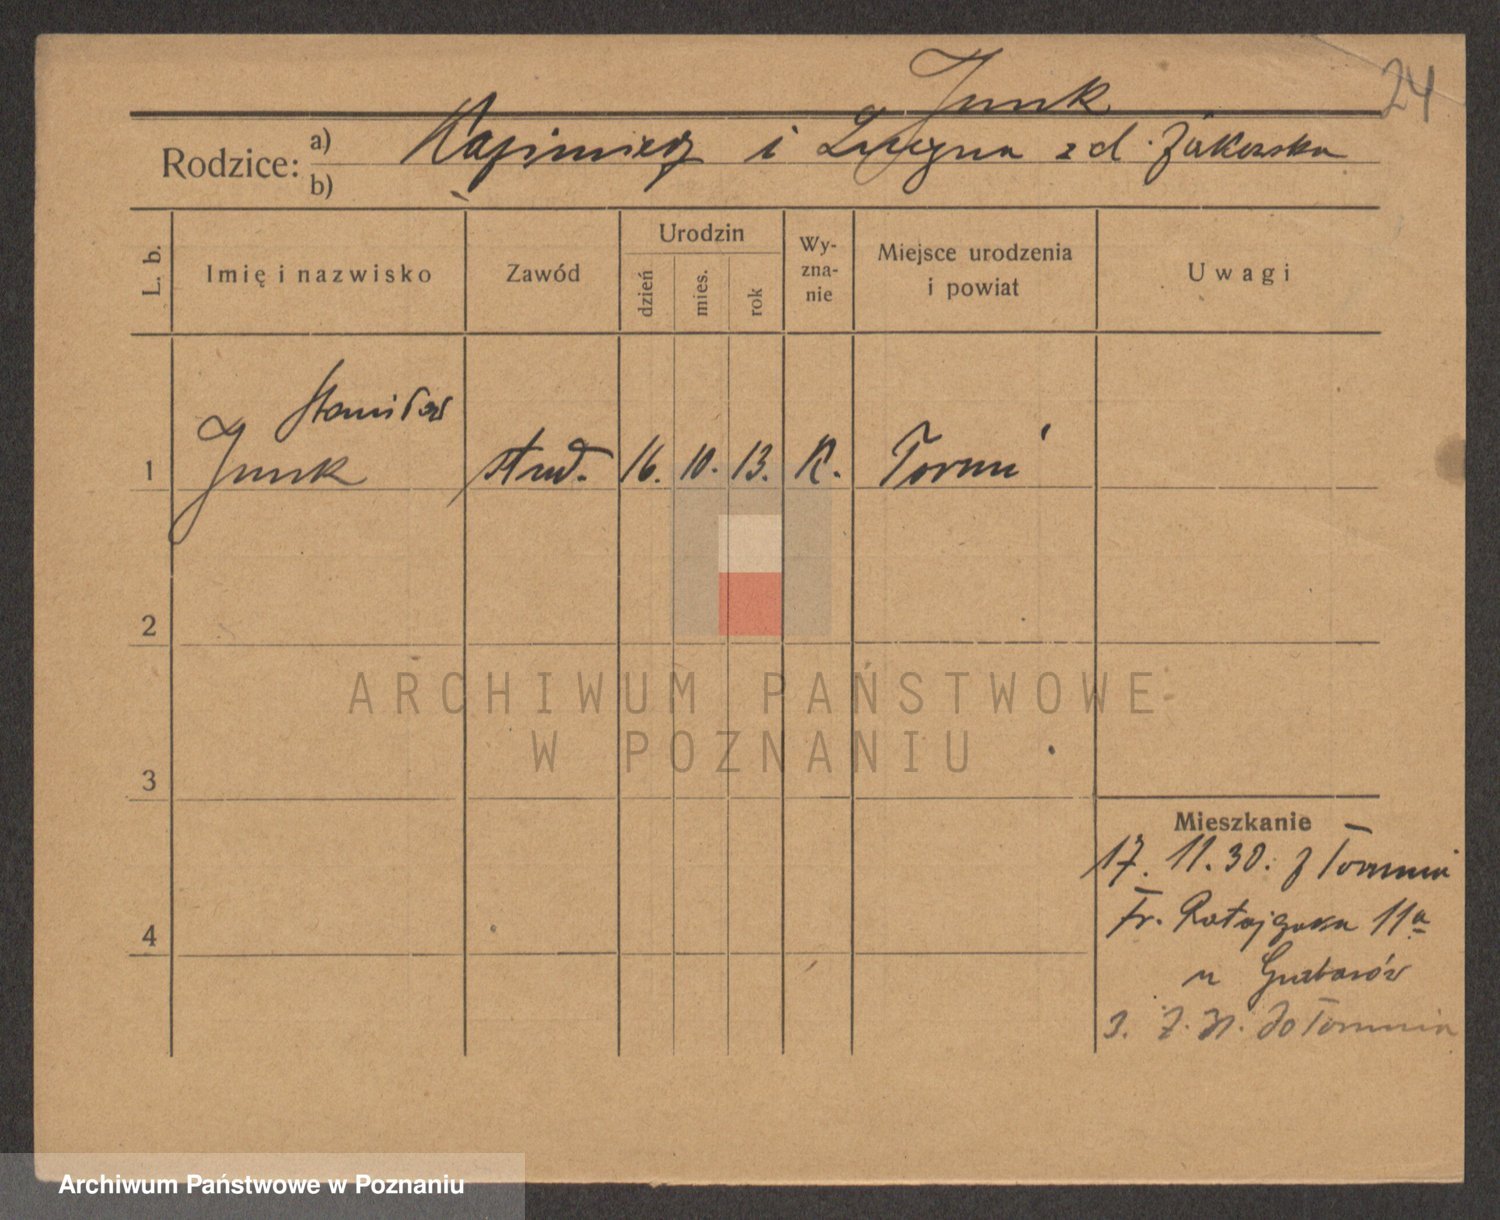 24
Junk
Rodzice: a) Kazimierz i Lucyna z d. Żakowska
b)
L. b.
Imię i nazwisko
Zawód
Urodzin
dzień
mies.
rok
Wy-
zna-
nie
Miejsce urodzenia
i powiat
Uwagi
Stanisław
1 Junk stud. 16. 10. 13. K. Toruń
2
3
4
ARCHIWUM PAŃSTWOWE
W POZNANIU
Mieszkanie
17. 11. 30. z Torunia
Fr. Ratajczaka 11a
u
3. 7. 31. do Torunia
Archiwum Państwowe w Poznaniu